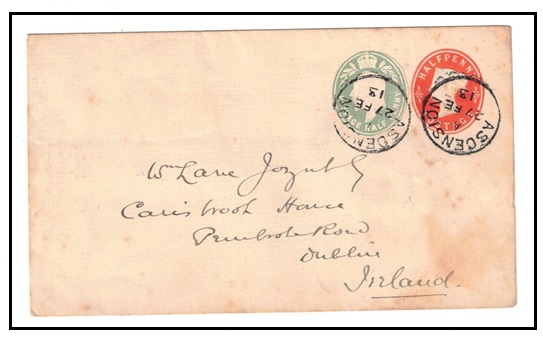 HALFPENNY
ASCENSION
27 FE
13
ASCENSION
A
27 FE
13
Wm Lane Joynt Esq
Carisbrook House
Pembroke Road
Dublin
Ireland.